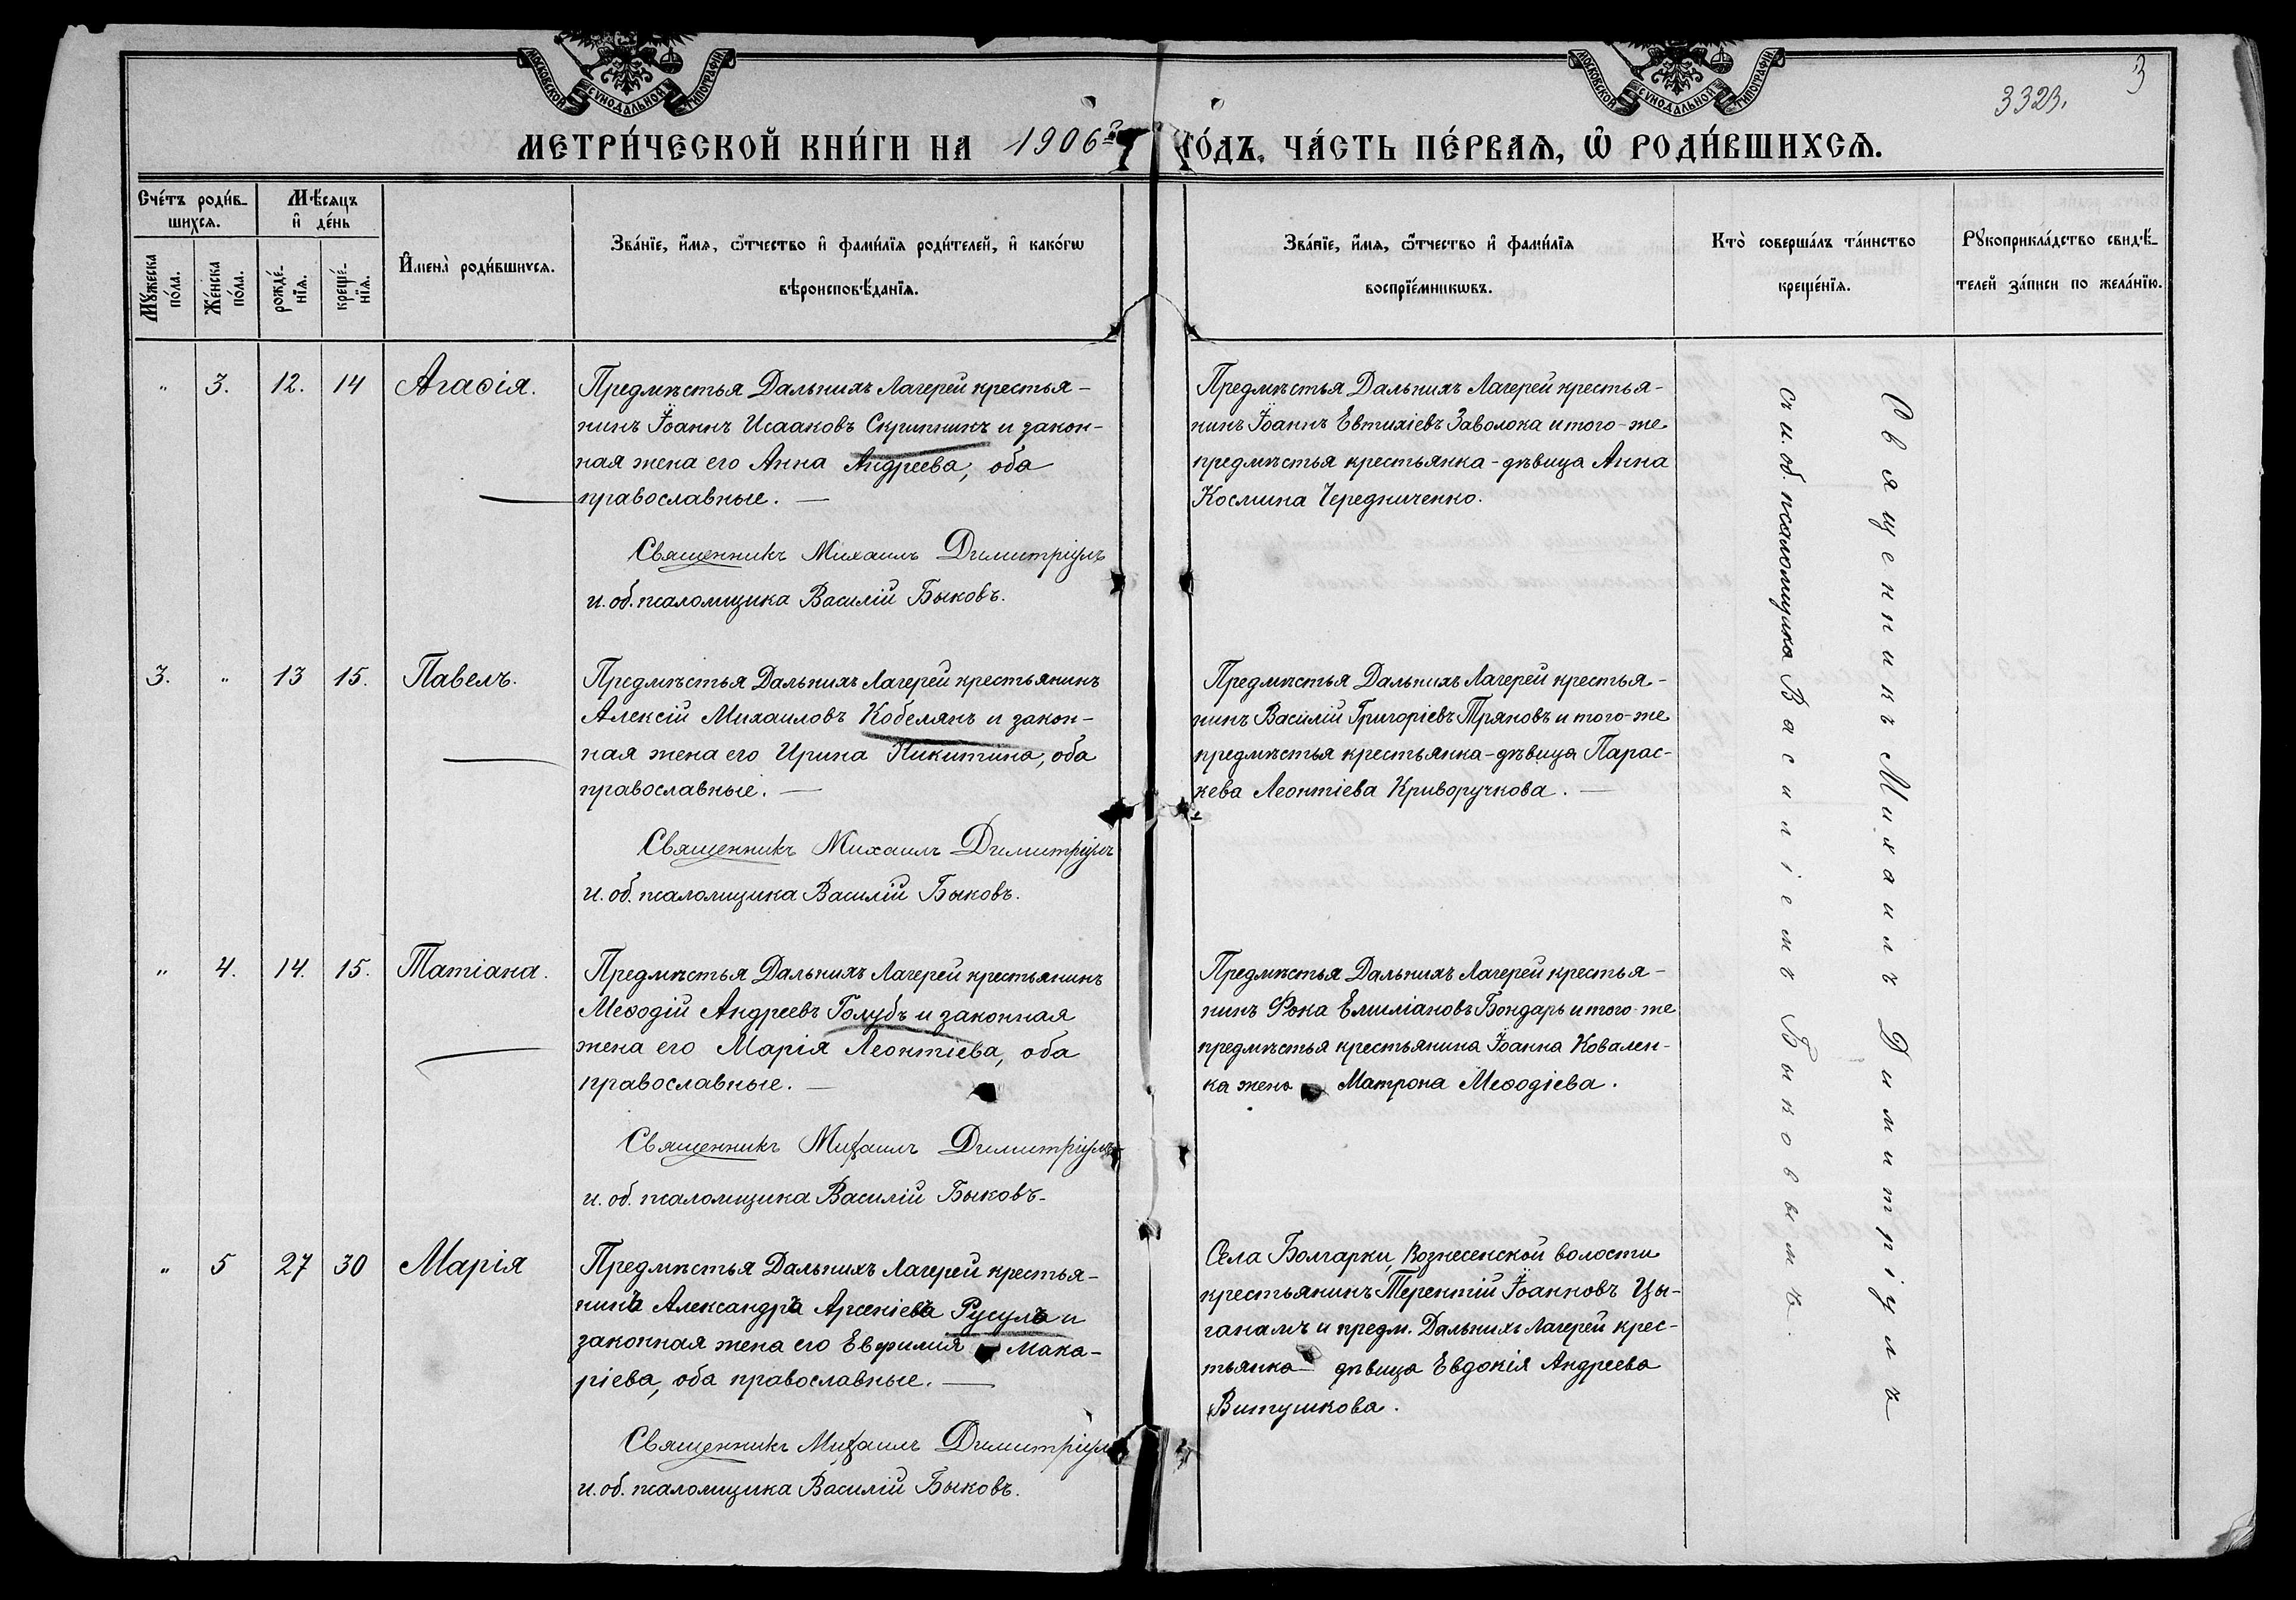 МОСКОВСКОЙ СѴНОДАЛЬНОЙ ТИПОГРАФІИ
МОСКОВСКОЙ СѴНОДАЛЬНОЙ ТИПОГРАФІИ
3
3323.
МЕТРИ́ЧЕСКОЙ КНИ́ГИ НА 1906 го́дъ. ЧА́СТЬ ПЕ́РВАѦ, Ѡ҆ РОДИ́ВШИХСѦ.
Сче́тъ роди́в-
шихсѧ.
Мѣ́сѧцъ
и҆ де́нь
Мꙋ́жеска
по́ла.
Же́нска
по́ла.
рожде́-
нїѧ.
креще́-
нїѧ.
И҆мена̀ роди́вшихсѧ.
Зва́нїе, и҆́мѧ, ѻ҆́тчество и҆ фами́лїѧ роди́телей, и҆ како́гѡ
вѣроисповѣ́данїѧ.
Зва́нїе, и҆́мѧ, ѻ҆́тчество и҆ фами́лїѧ
воспрїе́мникѡвъ.
Кто̀ соверша́лъ та́инство
креще́нїѧ.
Рꙋкоприкла́дство свидѣ́-
телей за́писи по жела́нїю.
" 3. 12. 14 Агаѳія.
Предмѣстья Дальнихъ Лагерей крестья-
нинъ Іоаннъ Исааковъ Скрипникъ и закон-
ная жена его Анна Андреева, оба
православные. —
Священникъ Михаилъ Димитріулъ
и. об. псаломщика Василій Быковъ.
Предмѣстья Дальнихъ Лагерей крестья-
нинъ Іоаннъ Евтихіевъ Заволока и того-же
предмѣстья крестьянка-дѣвица Анна
Космина Чередниченко.
3. " 13 15. Павелъ.
Предмѣстья Дальнихъ Лагерей крестьянинъ
Алексій Михаиловъ Кобелянъ и закон-
ная жена его Ирина Никитина, оба
православные. —
Священникъ Михаилъ Димитріулъ
и. об. псаломщика Василій Быковъ.
Предмѣстья Дальнихъ Лагерей крестья-
нинъ Василій Григоріевъ Тряновъ и того-же
предмѣстья крестьянка-дѣвица Парас-
кева Леонтіева Криворучкова. —
" 4. 14. 15. Татіана.
Предмѣстья Дальнихъ Лагерей крестьянинъ
Меѳодій Андреевъ Голубъ и законная
жена его Марія Леонтіева, оба
православные. —
Священникъ Михаилъ Димитріулъ
и. об. псаломщика Василій Быковъ.
Предмѣстья Дальнихъ Лагерей крестья-
нинъ Фока Емиліановъ Бондарь и того-же
предмѣстья крестьянина Іоанна Ковален-
ка жена Матрона Меѳодіева.
" 5 27 30 Марія
Предмѣстья Дальнихъ Лагерей крестья-
нинъ Александръ Арсеніевъ Русулъ и
законная жена его Евфимія Мака-
ріева, оба православные. —
Священникъ Михаилъ Димитріулъ
и. об. псаломщика Василій Быковъ.
Села Болгарки, Вознесенской волости
крестьянинъ Терентій Іоанновъ Цы-
ганашъ и предм. Дальнихъ Лагерей крес-
тьянка дѣвица Евдокія Андреева
Витушкова.
Священникъ Михаилъ Димитріулъ
съ и. об. псаломщика Василіемъ Быковымъ.